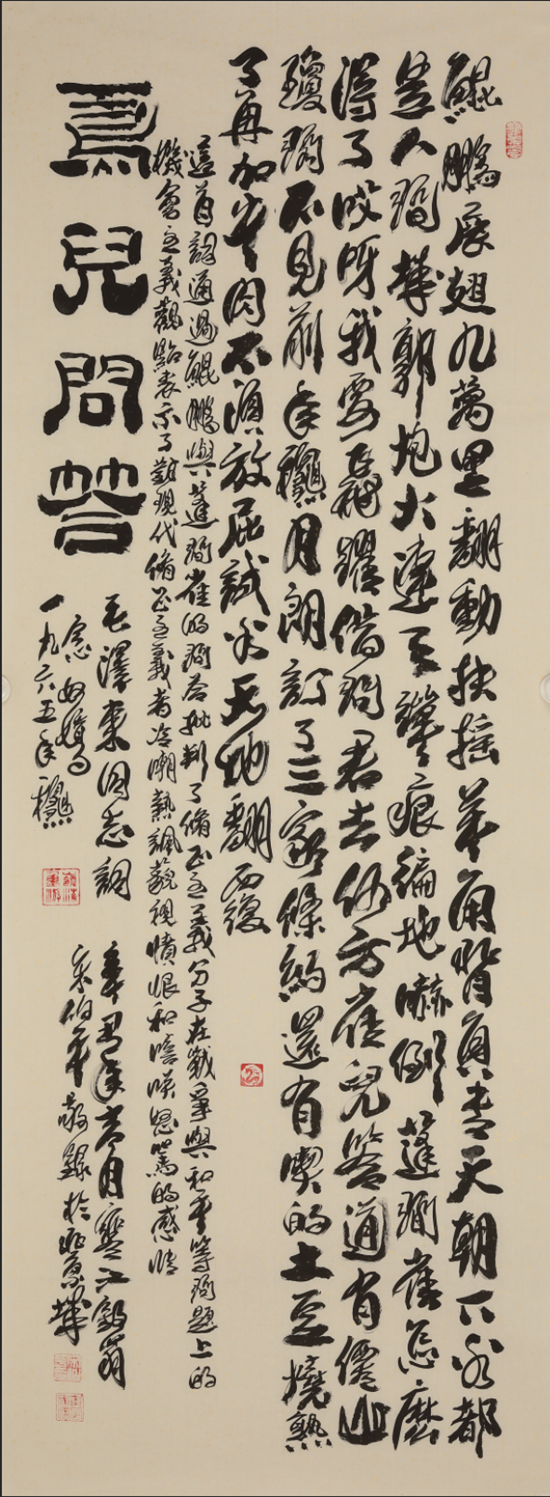 鯤鵬展翅九萬里翻動扶搖羊角背負青天朝下看都
是人間城郭炮火連天彈痕遍地嚇倒蓬間雀怎麼
得了哎呀我要飛躍借問君去何方雀兒答道有僊山
瓊閣不見前年秋月朗訂了三家條約還有喫的土豆燒熟
了再加牛肉不須放屁試看天地翻覆
這首詞通過鯤鵬與蓬間雀的問答批判了修正主義分子在戰爭與和平等問題上的
機會主義觀點表示了對現代修正主義者冷嘲熱諷藐視憤恨和怒罵的感情
鳥兒問答
毛澤東同志詞
念奴嬌
一九六五年秋
年月江釣翁
宋伯敬錄於城